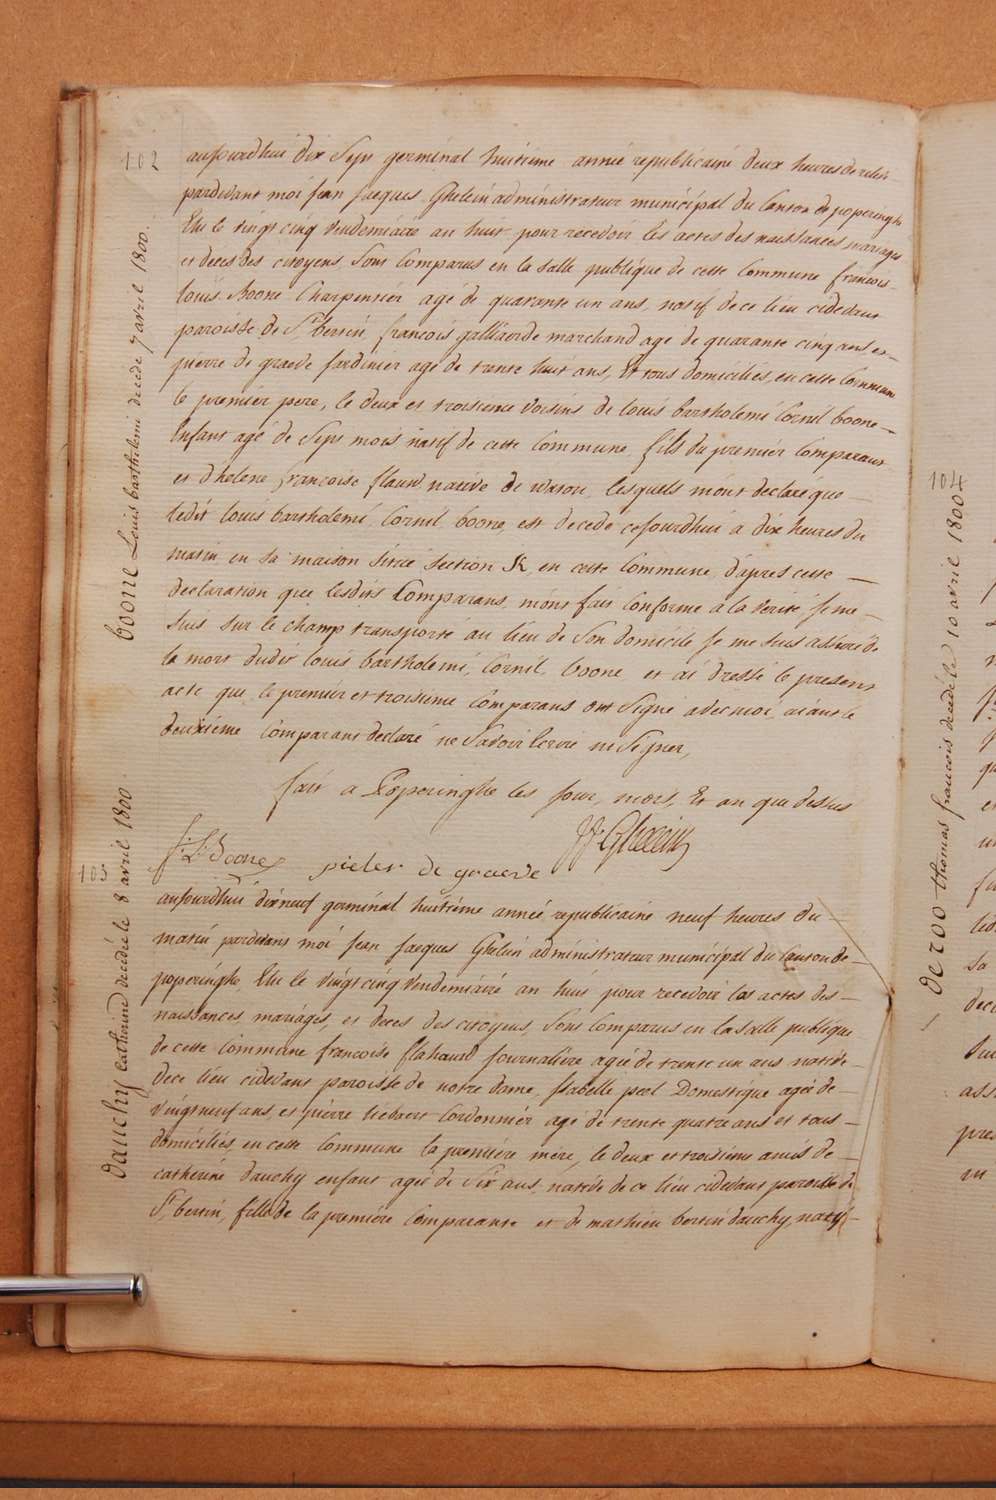 102
boone Louis barthelemi decede 7 avril 1800.
aujourdhui dix Sept germinal huitieme année republicaine deux heures de relevé
pardevant moi jean jacques Ghelein administrateur municipal du Canton de poperinghe
Elu le vingt cinq vendemiaire an huit pour recevoir les actes des naissances mariages
et deces des citoyens, Sont Comparus en la salle publique de cette Commune francois
louis Boone Charpentier agé de quarante un ans, natif de ce lieu cidevant
paroisse de St bertin, francois galliaerde marchand agé de quarante cinq ans et
pierre de graeve Jardinier agé de trente huit ans, Et tous domiciliés, en cette Commune
le premier pere, le deux et troisieme voisins de louis bartholemi Cornil boone
Enfant agé de Sept mois natif de cette Commune fils du premier Comparant
et dhelene francoise flauw native de watou, lesquels m'ont declaré que
ledit louis bartholemi Cornil boone est decedé cejourdhui a dix heures du
matin en sa maison Sitüe Section K, en cette Commune, d'apres cette
declaration que lesdits Comparans, m'ont fait Conforme a la verité Je me
Suis sur le champ transporté au lieu de Son domicile Je me Suis assuré de
la mort dudit louis bartholemi Cornil boone et ai dressé le present
acte que le premier et troisieme Comparans ont Signé avec moi, aiant le
deuxieme Comparant declaré ne Savoir Ecrire ni Signer,
fait a Poperinghe les Jour, mois, Et an que dessus
JJ. Ghelein
f: L: Boone pieter de graeve
103
dauchy catherine decedé le 8 avril 1800
aujourdhui dixneuf germinal huitieme année republicaine neuf heures du
matin pardevant moi Jean Jacques Ghelein administrateur municipal du Canton de
poperinghe, Elu le vingt cinq vendemiaire an huit pour recevoir les actes des
naissances mariages, et deces des citoyens, Sont Comparus en la Salle publique
de cette Commune francoise flahauw Journaliere agée de trente un ans native
de ce lieu cidevant paroisse de notre dame, Isabelle peel Domestique agée de
vingt neuf ans, et pierre liebaert Cordonnier agé de trente quatre ans et tous
domiciliés, en cette Commune la premiere mere, le deux et troisieme amis de
catherine dauchy enfant agée de Six ans, native de ce lieu cidevant paroisse de
St bertin, fille de la premiere Comparante et de mathieu bertin dauchy, natif
104
de roo thomas francois decedé le 10 avril 1800